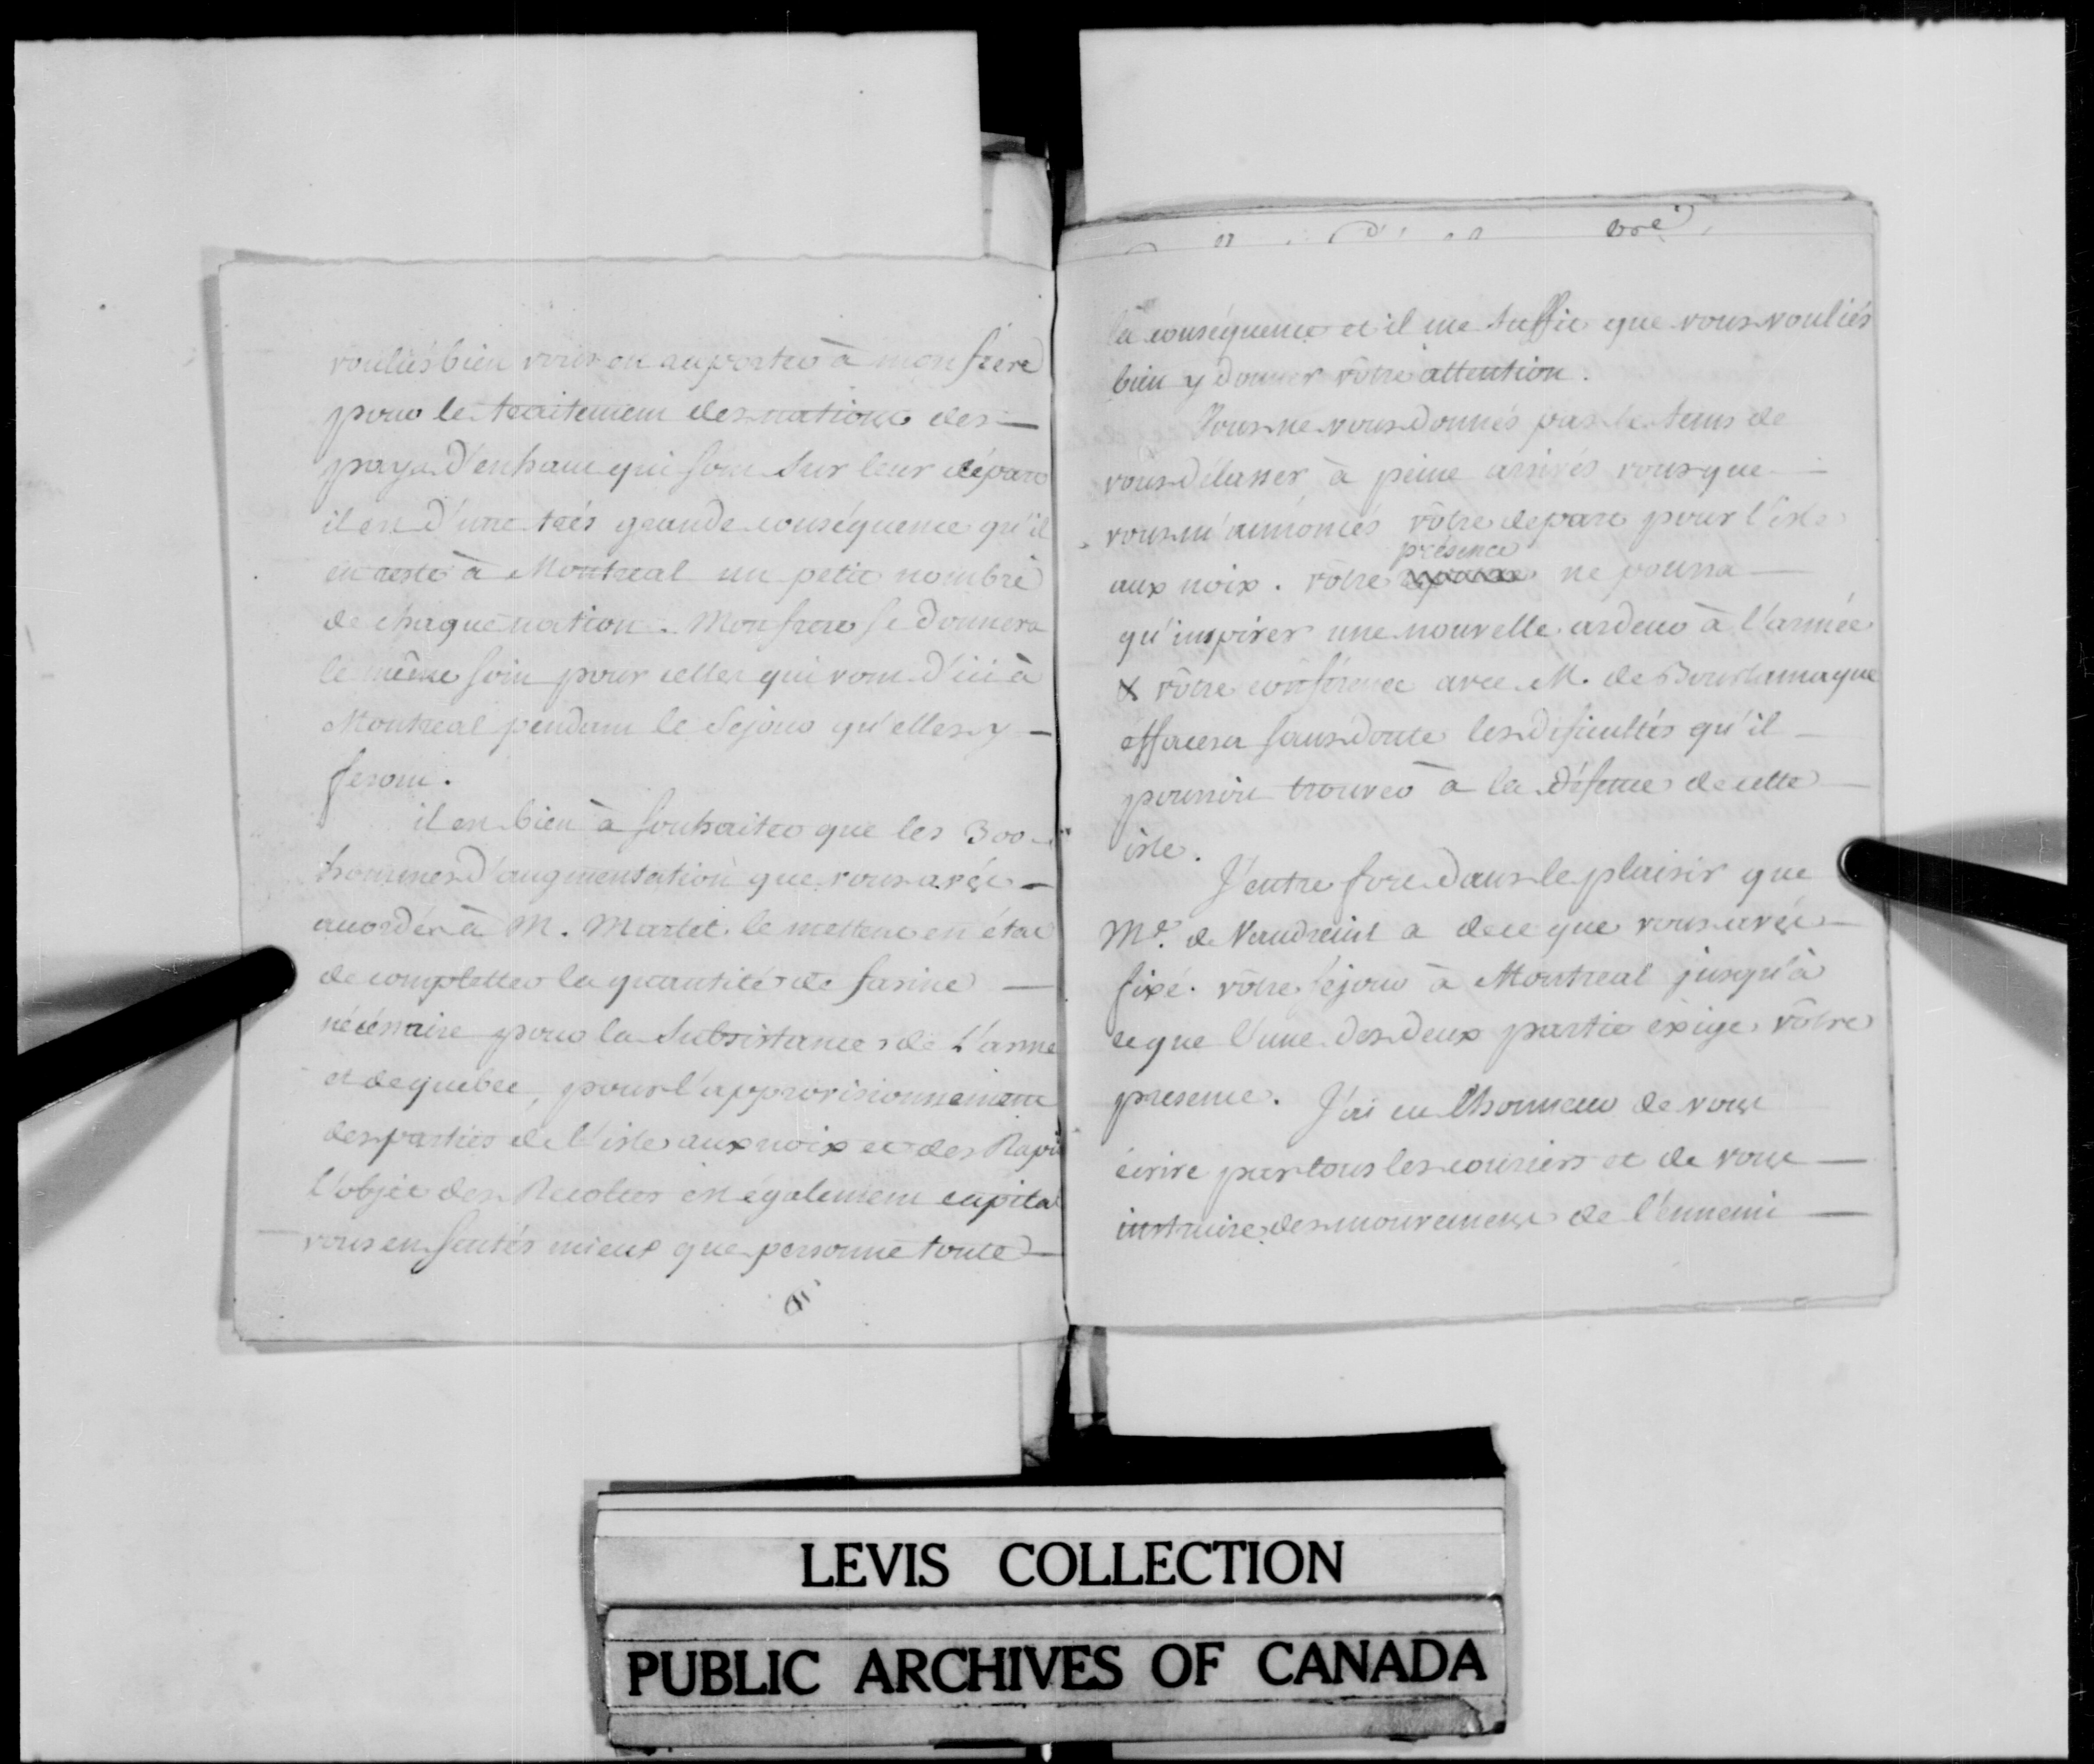 vouliés bien vous en raporter à mon frere
pour le traitement des nations des
pays d'enhaut qui sont sur leur départ
il est d'une trés grande conséquence qu'il
en reste à Montreal un petit nombre
de chaque nation. Mon frere se donnera
le même soin pour celles qui vont d'ici à
Montreal pendant le Sejour qu'elles y
feront.
il est bien à souhaiter que les 300
hommes d'augmentation que vous avés
acordés à M. Martel le mettent en état
de completter la quantité de farine
nécéssaire pour la Subsistance de l'armé
et de quebec, pour l'approvisionnement
des parties de l'isle aux noix et des Rapi
l'objet des Recoltes est également capital
vous en sentés mieux que personne toute
la conséquence et il me suffit que vous vouliés
bien y donner vôtre attention.
Vous ne vous donnés pas le tems de
vous délasser à peine arrivés vous que
vous m'annoncés vôtre depart pour l'isle
présence
aux noix. vôtre ne pourra
qu'inspirer une nouvelle ardeur à l'armée
& vôtre conférence avec M. de Bourlamaque
éffacera sans doute les dificultés qu'il
pourroit trouver à la défense de cette
isle.
J'entre fort dans le plaisir que
Me. de Vaudreuil a de ce que vous avés
fixé vôtre séjour à Montreal jusqu'à
ce que l'une des deux partie éxige vôtre
presence. J'ai eu l'honneur de vous
écrire par tous les couriers et de vous
instruire des mouvemens de l'énnemi
LEVIS COLLECTION
PUBLIC ARCHIVES OF CANADA